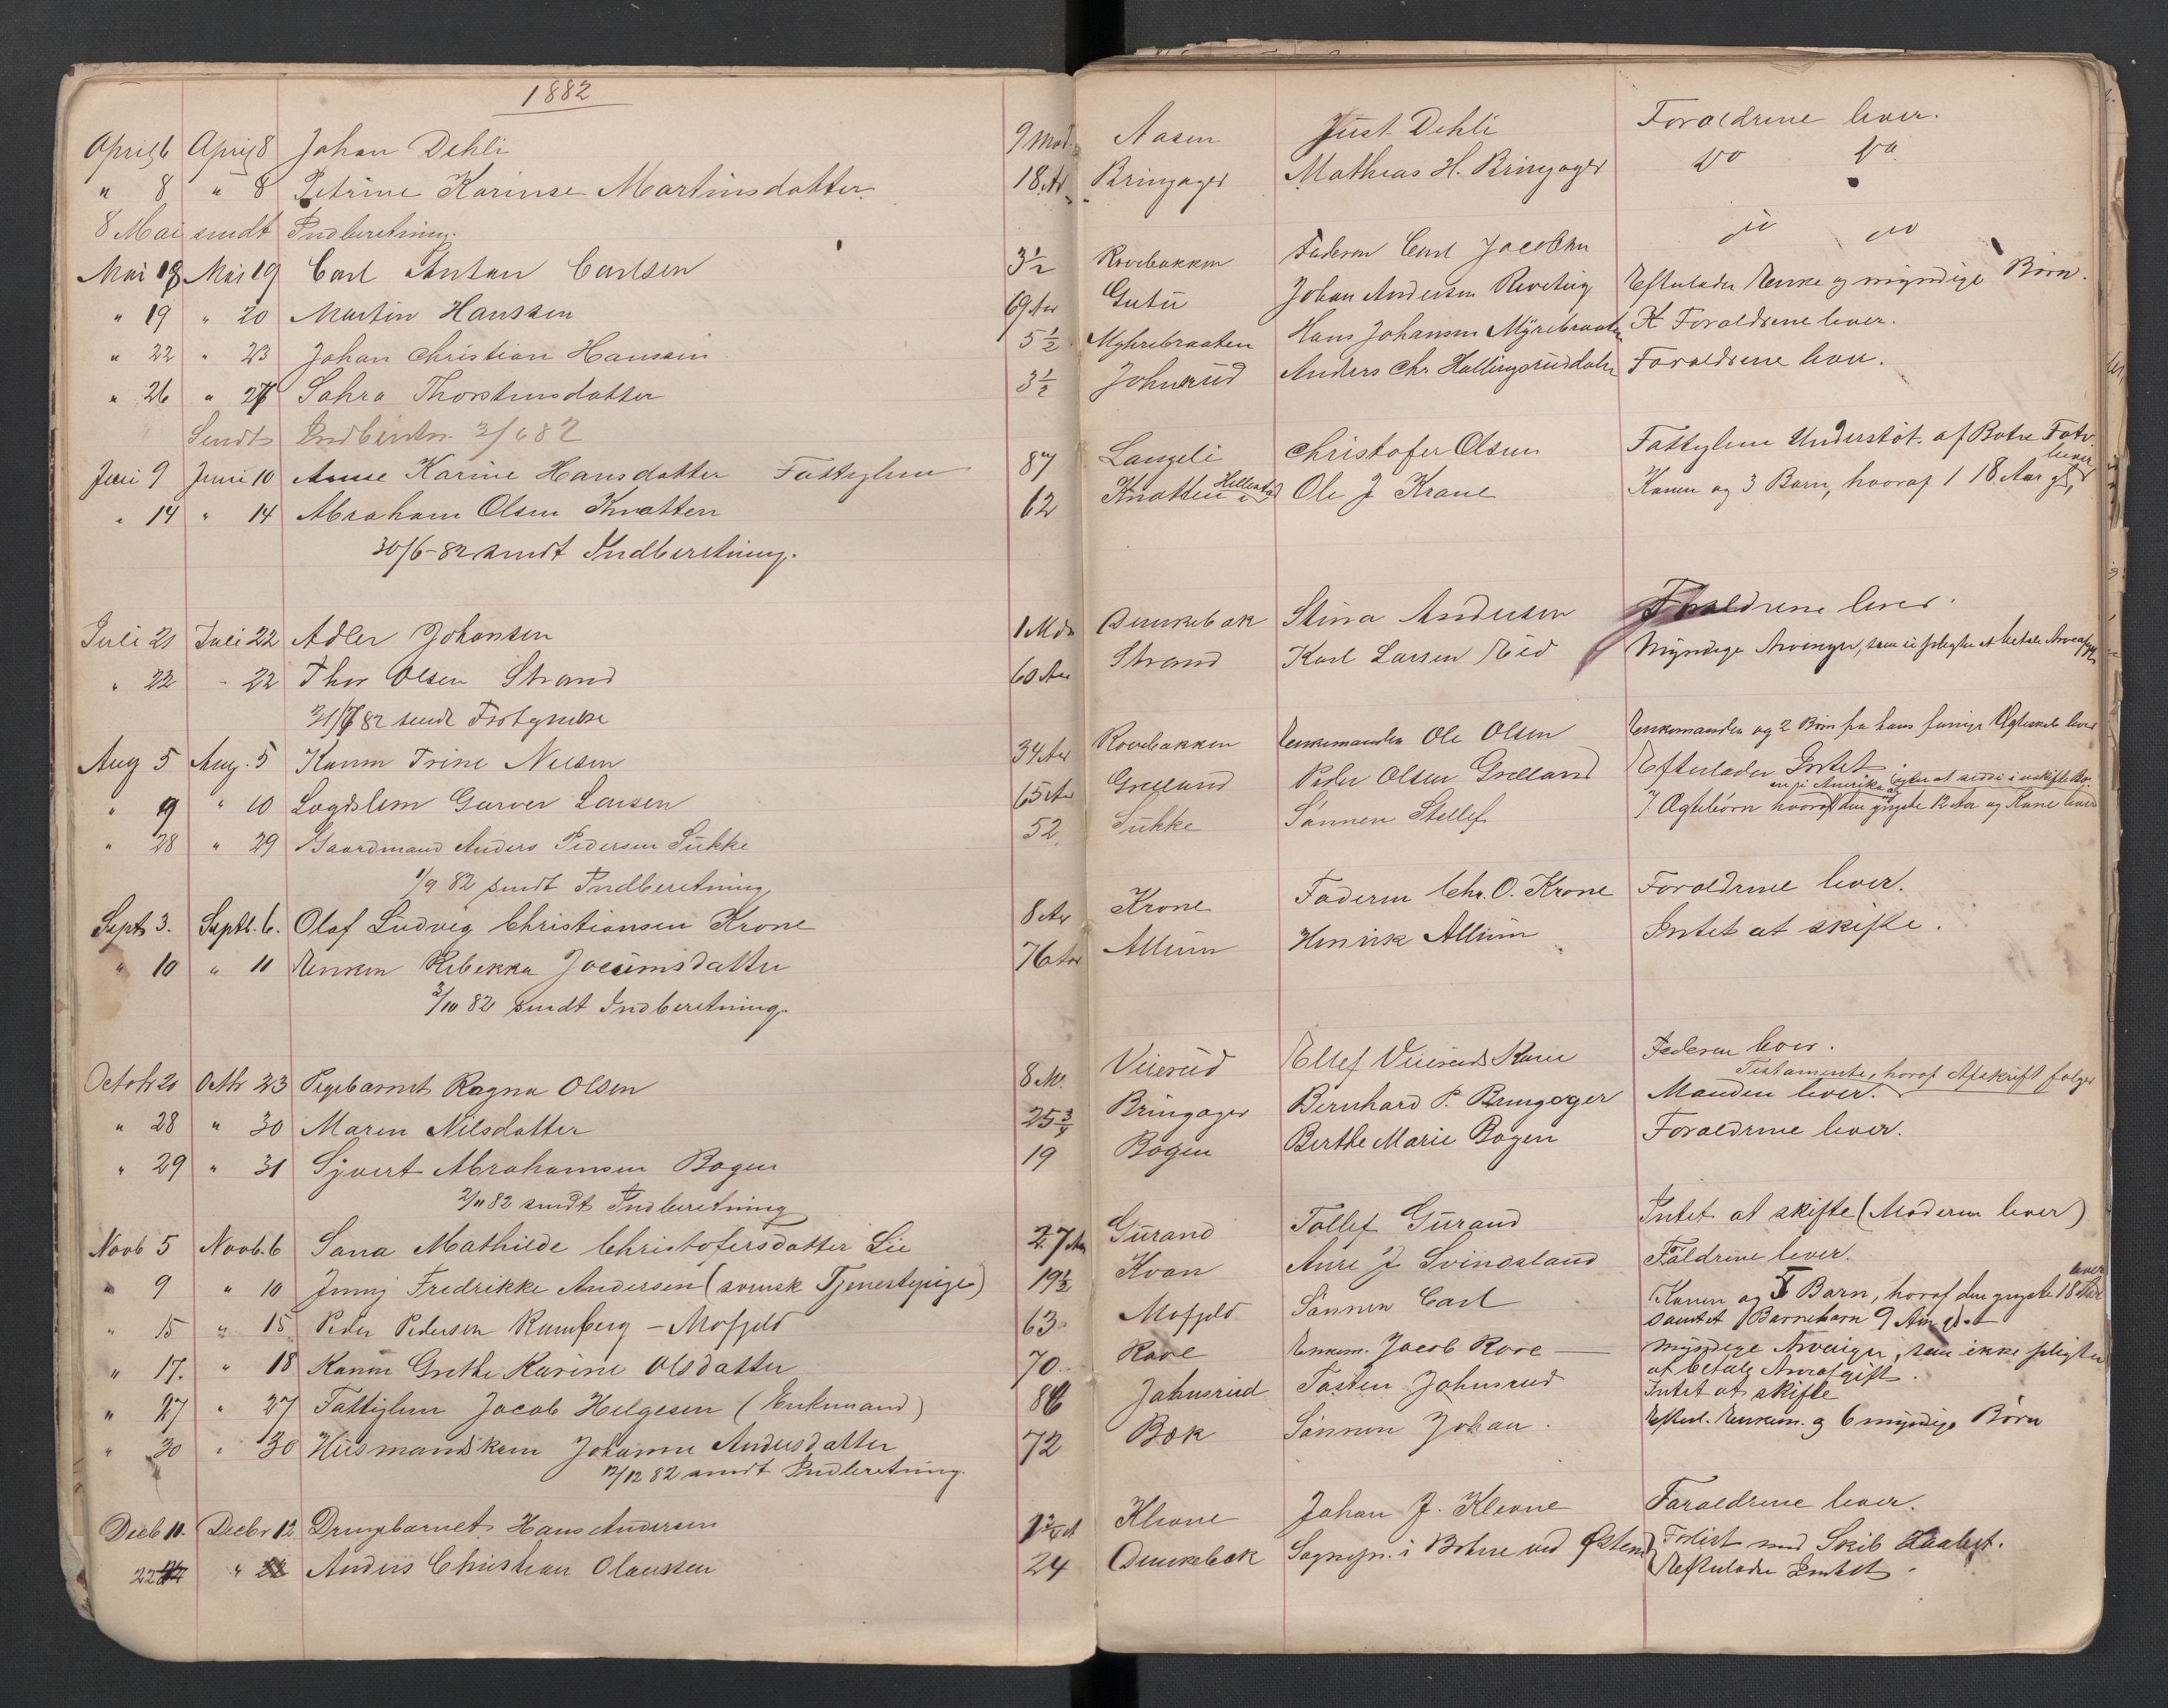 1882
April 6 April 8 Johan Dehli 9 Md. Aasen Just Dehli Foraeldrene lever.
" 8 " 8 Petrine Karinse Martinsdatter 18 Ar Bringager Mathias H. Bringager do do
8 Mai sendt Indberetning.
Mai 18 Mai 19 Carl Anton Carlsen 3 1/2 Rovebakken Faderen Carl Jacobsen do do
" 19 " 20 Martin Hanssen 69 Aar Gutu Johan Andersen Efterlader Enke og myndige Börn.
" 22 " 23 Johan Christian Hanssen 5 1/2 Myhrebraaten Hans Johansen Myrebraaten Foraeldrene lever.
" 26 " 27 Sahra Thorstensdatter 3 1/2 Johnsrud Anders Chr. Hallingsruddalen Foraeldrene lever.
Sendt Indberetn. 3/6 82
Juni 9 Juni 10 Anne Karine Hansdatter Fattiglem 87 Langeli Christofer Olsen Fattiglem Understöt. af Botne Fatv.
" 14 " 14 Abraham Olsen Knatten 62 Knatten Ole J Krane Konen og 3 Barn, hvoraf 1 18 Aar gl. lever
30/6-82 sendt Indberetning.
Juli 21 Juli 22 Adler Johansen 1 Mdr Dunkebæk Stina Andersen Foraeldrene lever.
" 22 " 22 Thor Olsen Strand 60 Aar Strand Karl Larsen Eid Myndige Arvinger, som ei pligter at betale Arveafgift
31/7 82 sendt
Aug 5 Aug. 5 Konen Trine Nilsen 34 Aar Rovebakken Enkemanden Ole Olsen Enkemanden og 2 Börn fra hans forrige Ægteskab lever
" 9 " 10 Logdslem Garver Larsen 65 Aar Grelland Peder Olsen Grelland Efterlader Intet.
en i Amerika
" 28 " 29 Gaardmand Anders Pedersen Sukke 52 Sukke Sønnen Stellef 7 Ægtebörn hvoraf den yngste 12 Aar og Kone lever
1/9 82 sendt Indberetning
Septb 3. Septb. 6. Olaf Ludvig Christiansen Krone 8 Ar Krone Faderen Chr. O. Krone Foraeldrene lever.
" 10 " 11 Enken Rebekka Jocumsdatter 76 Aar Allum Henrik Allum Intet at skifte.
3/10 82 sendt Indberetning.
Octobr 20 Octbr 23 Pigebarnet Ragna Olsen 8 M. Viierud Ellef Viieruds Kone Faderen lever.
Testamente, hvoraf Afskrift følger
" 28 " 30 Maren Nilsdatter 25 3/4 Bringager Bernhard P. Bringager Manden lever.
" 29 " 31 Sjvert Abrahamsen Bogen 19 Bogen Berthe Marie Bogen Foraeldrene lever.
2/11 82 sendt Indberetning
Novb 5 Novb. 6 Sana Mathilde Christofersdatter Lie 27 Aar Gurand Tollef Gurand Intet at skifte (Moderen lever)
" 9 " 10 Jenny Fredrikke Andersen (svensk Tjenestepige) 19 1/2 Kvan Anre J Svindaland Fäldrene lever.
" 15 " 15 Peder Pedersen Rumberg - Mofjeld 63 Mofjeld Sønnen Carl Konen og 5 Barn, hvoraf den yngste 18 Aar lever
samt et Barnebarn 9 Aar
" 17. " 18 Konen Grethe Karine Olsdatter 70 Rove Enkem. Jacob Rove — Myndige Arvinger, som ikke pligter
at betale Arveafgift.
" 27 " 27 Fattiglem Jacob Helgesen (Enkemand) 86 Johnsrud Tosten Johnsrud Intet at skifte
" 30 " 30 Husmandskone Johanne Andersdatter 72 Bæk Sønnen Johan. Efterl. Enkem. og 6 myndige Børn
12/12 82 sendt Indberetning.
Decb 11. Decbr 12 Drengebarnet Hans Andersen 1 3/4 A Klevne Johan J. Klevne Foraeldrene lever.
22 " 22 Anders Christian Olaussen 24 Dunkebæk Sognepr. i Botne ved Forlist med Skib
Efterlader Intet.